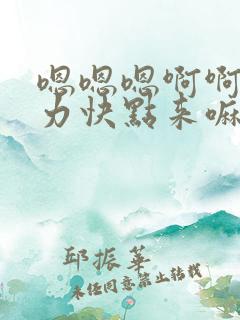 嗯嗯嗯啊啊
力快點来嘛
邱振華
未经同意禁止转载